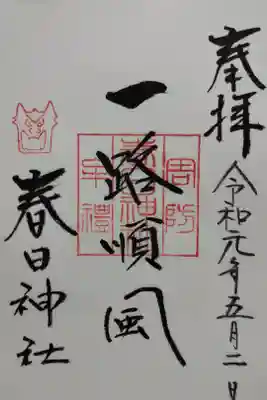 奉拝
令和元年五月二日
一路順風
周防
春日神社
牟禮
春日神社